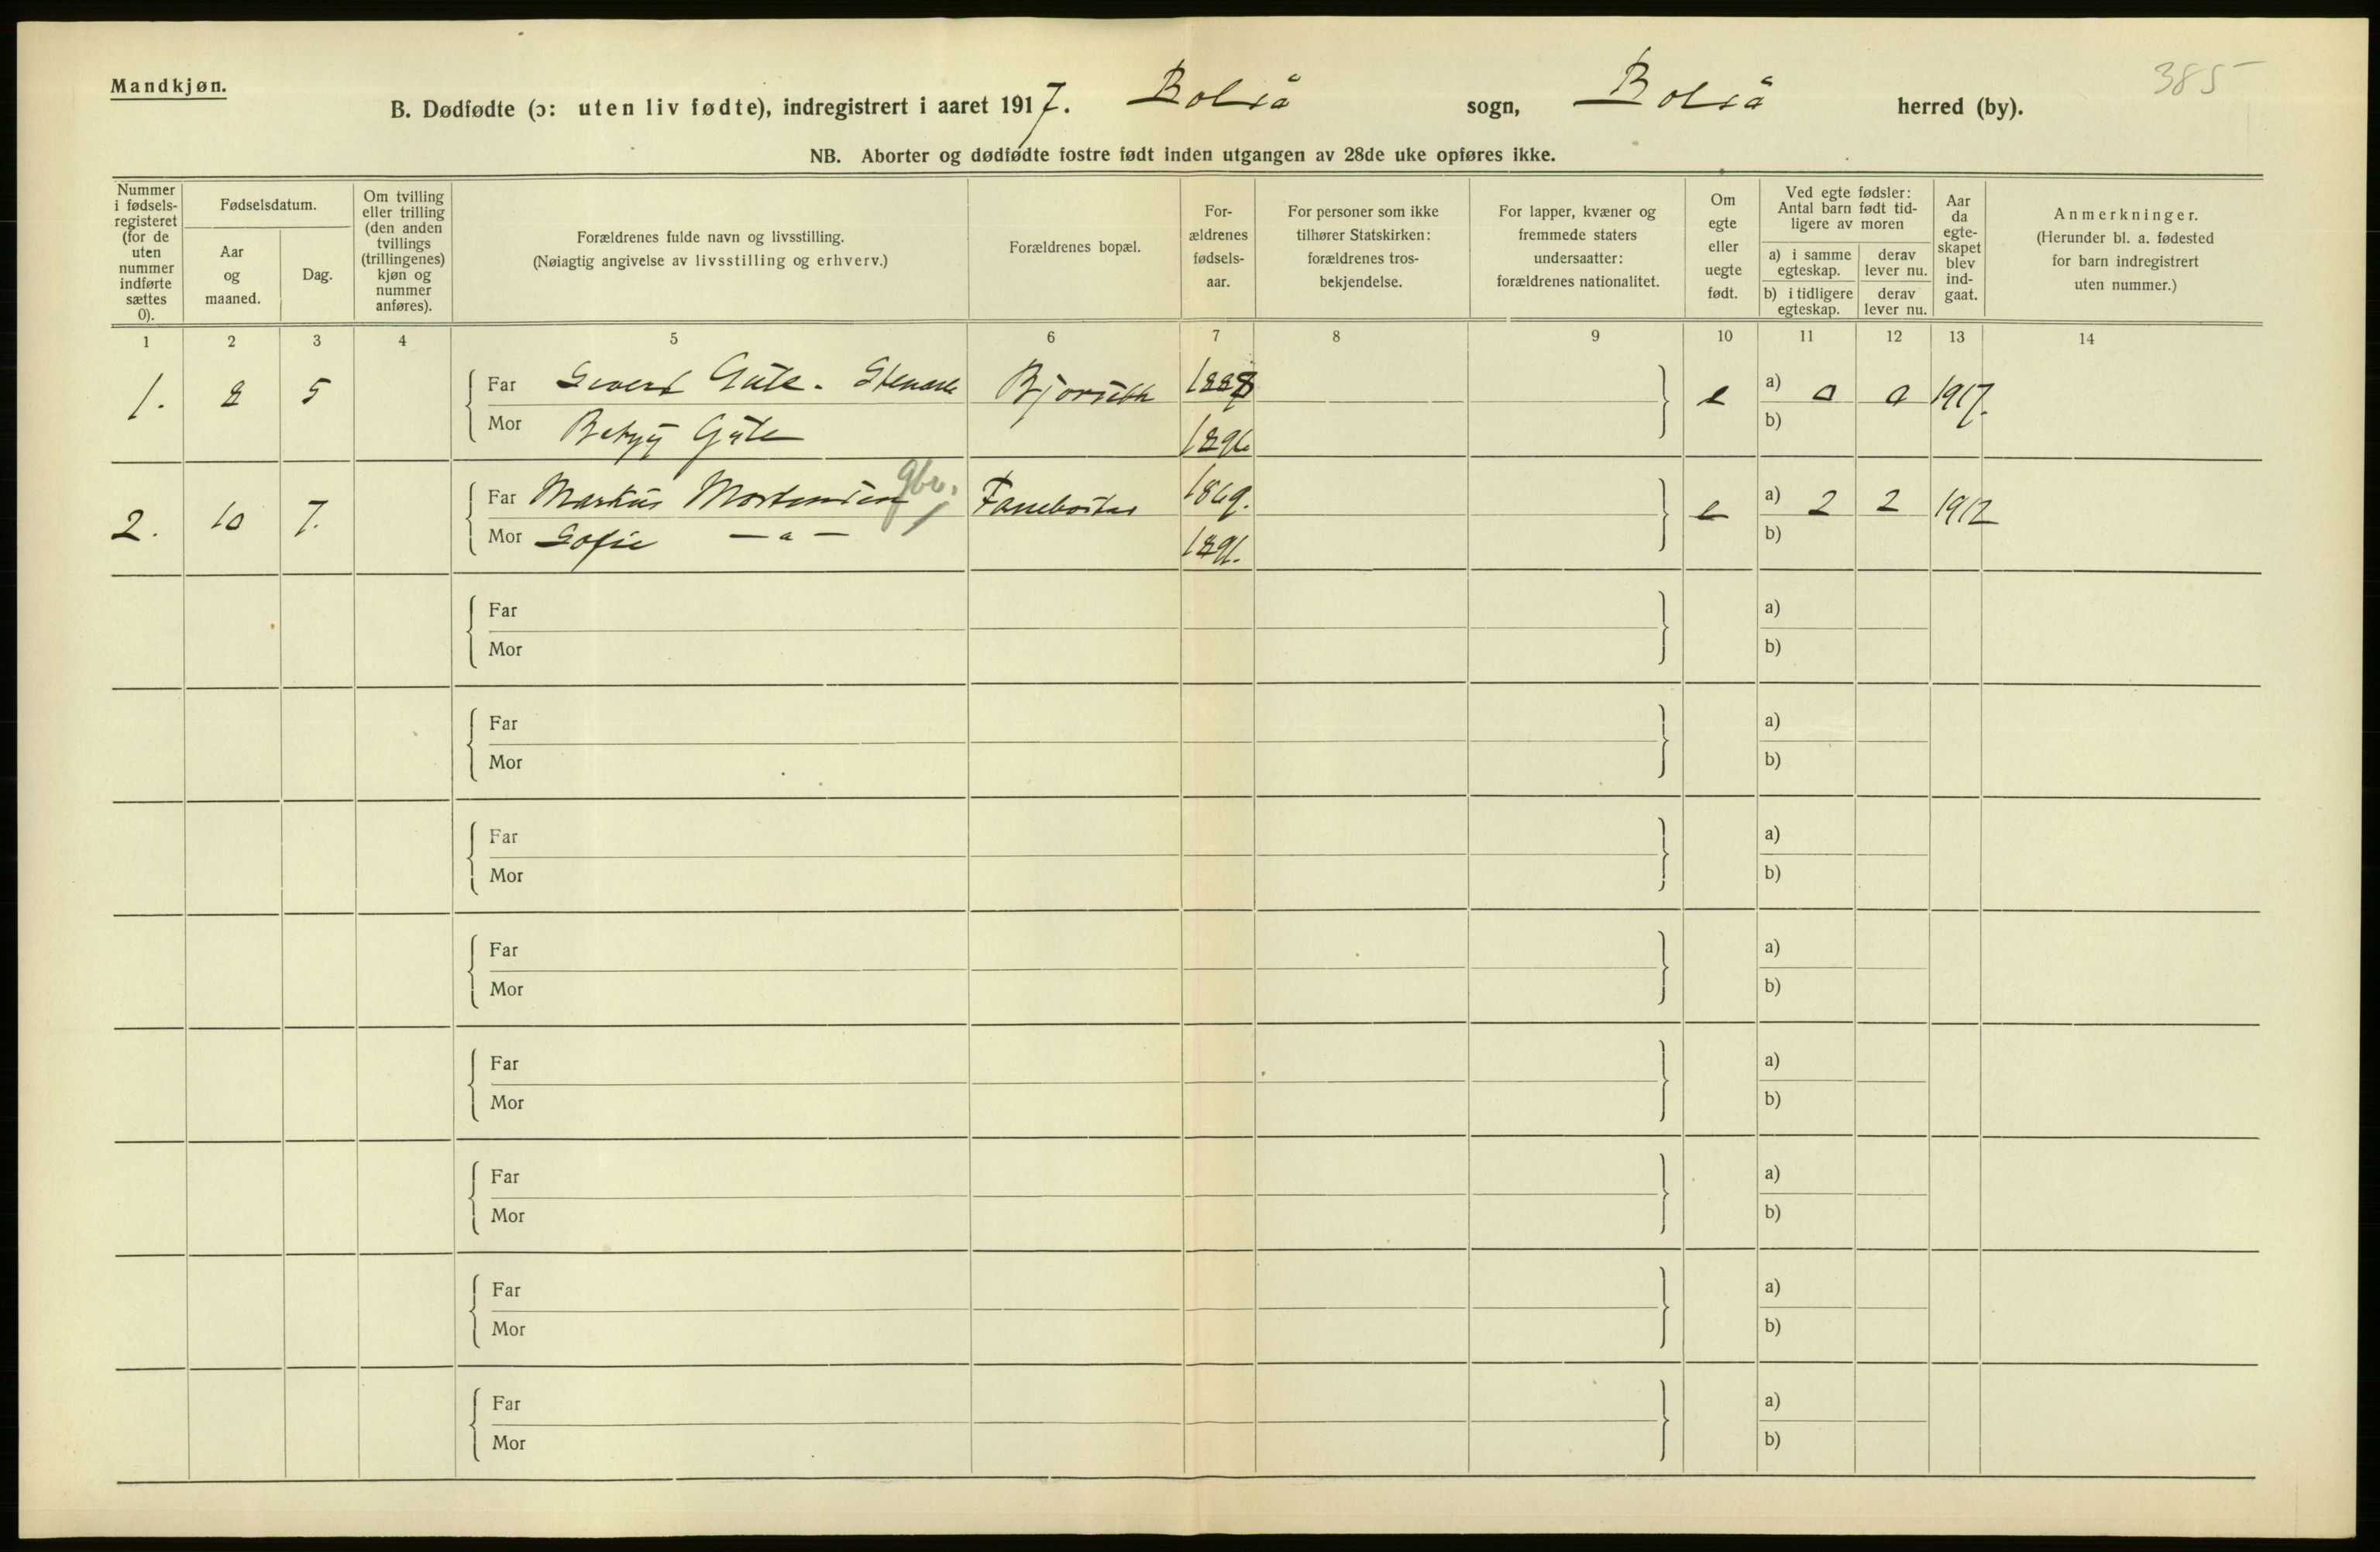 Mandkjøn.
385
B. Dødfødte (ɔ: uten liv fødte), indregistrert i aaret 1917. Bolsö sogn, Bolsö herred (by).
NB. Aborter og dødfødte fostre født inden utgangen av 28de uke opføres ikke.
Nummer i fødsels-registeret (for de uten nummer indførte sættes 0).
Fødselsdatum.
Aar og maaned.
Dag.
Om tvilling eller trilling (den anden tvillings (trillingenes) kjøn og nummer anføres).
Forældrenes fulde navn og livsstilling.
(Nøiagtig angivelse av livsstilling og erhverv.)
Forældrenes bopæl.
For-ældrenes fødsels-aar.
For personer som ikke tilhører Statskirken: forældrenes tros-bekjendelse.
For lapper, kvæner og fremmede staters undersaatter: forældrenes nationalitet.
Om egte eller uegte født.
Ved egte fødsler: Antal barn født tid-ligere av moren
a) i samme egteskap.
derav lever nu.
b) i tidligere egteskap.
derav lever nu.
Aar da egte-skapet blev ind-gaat.
Anmerkninger.
(Herunder bl. a. fødested for barn indregistrert uten nummer.)
1 2 3 4 5 6 7 8 9 10 11 12 13 14
1. 2 5 Far Sivert 1888 e a) 0 0 1917.
Mor 1896 b)
2. 10 7. Far Markus Mortensen gbr. 1869. e a) 2 2 1912
Mor Sofie —"— 1896. b)
Far a)
Mor b)
Far a)
Mor b)
Far a)
Mor b)
Far a)
Mor b)
Far a)
Mor b)
Far a)
Mor b)
Far a)
Mor b)
Far a)
Mor b)